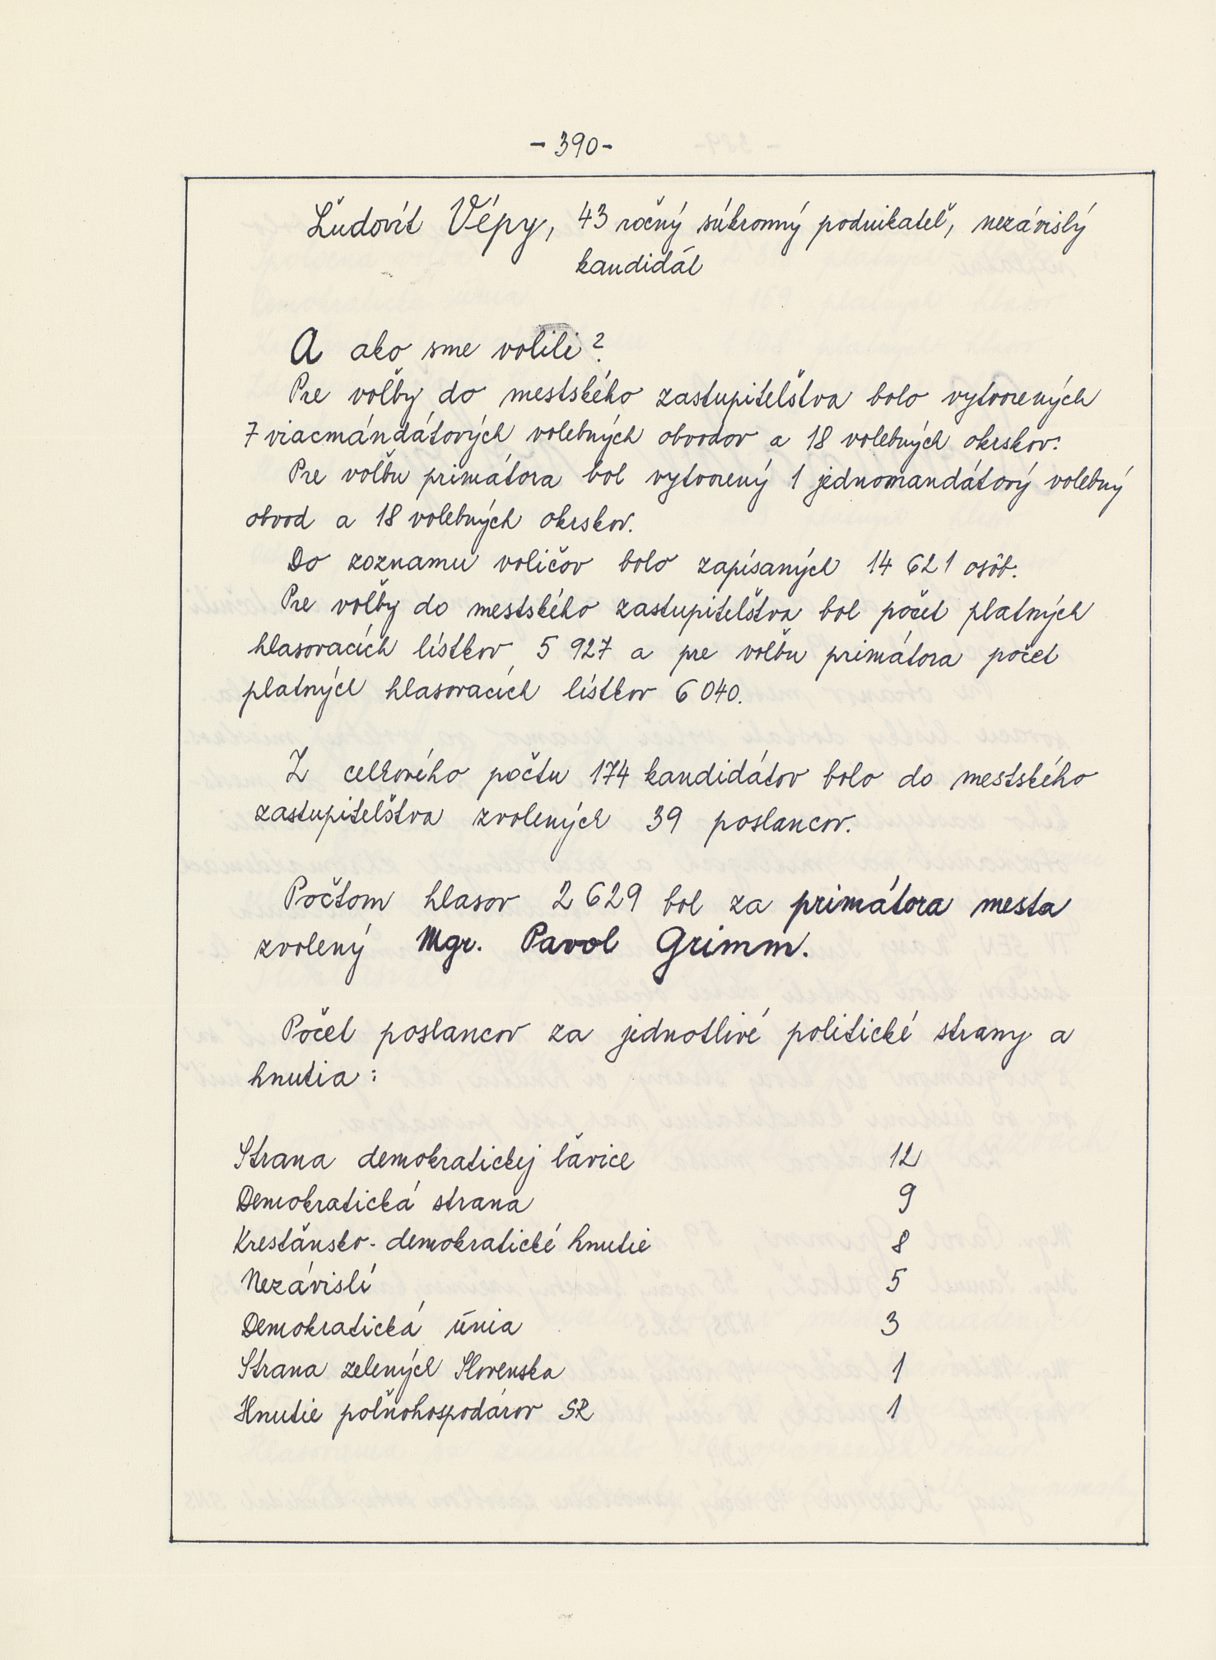 - 390 -
Ľudovít Vépy, 43 ročný súkromný podnikateľ, nezávislý
kandidát
A ako sme volili?
Pre voľby do mestského zastupiteľstva bolo vytvorených
7 viacmándátových volebných obvodov a 18 volebných okrskov.
Pre voľbu primátora bol vytvorený 1 jednomandátový volebný
obvod a 18 volebných okrskov.
Do zoznamu voličov bolo zapísaných 14 621 osôb.
Pre voľby do mestského zastupiteľstva bol počet platných
hlasovacích lístkov 5 927 a pre voľbu primátora počet
platných hlasovacích lístkov 6 040.
Z celkového počtu 174 kandidátov bolo do mestského
zastupiteľstva zvolených 39 poslancov.
Počtom hlasov 2 629 bol za primátora mesta
zvolený Mgr. Pavol Grimm.
Počet poslancov za jednotlivé politické strany a
hnutia:
Strana demokratickej ľavice 12
Demokratická strana 9
Kresťansko-demokratické hnutie 8
Nezávislí 5
Demokratická únia 3
Strana zelených Slovenska 1
Hnutie poľnohospodárov SR 1